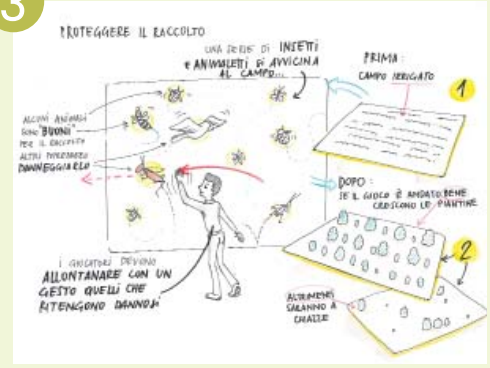 3
PROTEGGERE IL RACCOLTO
UNA SERIE DI INSETTI
E ANIMALETTI SI AVVICINA
AL CAMPO...
ALCUNI ANIMALI
SONO "BUONI"
PER IL RACCOLTO
ALTRI POTREBBERO
DANNEGGIARLO
I GIOCATORI DEVONO
ALLONTANARE CON UN
GESTO QUELLI CHE
RITENGONO DANNOSI
PRIMA:
CAMPO IRRIGATO
1
DOPO:
SE IL GIOCO È ANDATO BENE
CRESCONO LE PIANTINE
2
ALTRIMENTI
SARANNO A
CHIAZZE